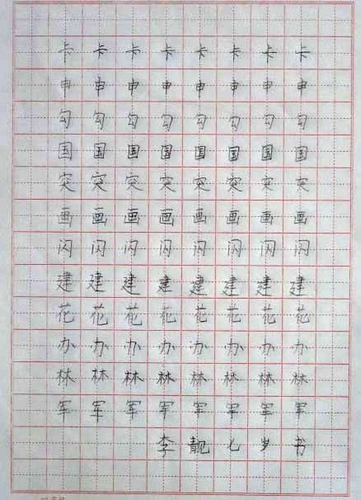 卡卡卡卡卡卡卡卡
申申申申申申申申
勾勾勾勾勾勾勾勾
国国国国国国国国
突突突突突突突突
画画画画画画画画
闪闪闪闪闪闪闪闪
建建建建建建建建
花花花花花花花花
办办办办办办办办
林林林林林林林林
军军军军军军军军
李靓七岁书